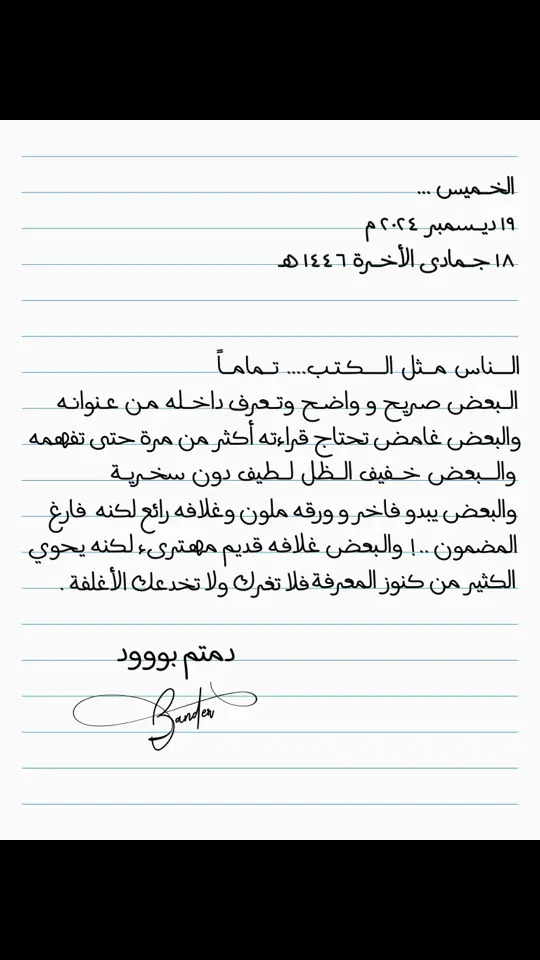 الخميس ...
١٩ ديسمبر ٢٠٢٤ م
١٨ جمادى الأخرة ١٤٤٦ هـ
الناس مثل الكتب.... تماماً
البعض صريح و واضح وتعرف داخله من عنوانه
والبعض غامض تحتاج قراءته أكثر من مرة حتى تفهمه
والبعض خفيف الظل لطيف دون سخرية
والبعض يبدو فاخر و ورقه ملون وغلافه رائع لكنه فارغ
المضمون ..! والبعض غلافه قديم مهترىء لكنه يحوي
الكثير من كنوز المعرفة فلا تغرك ولا تخدعك الأغلفة .
دمتم بووود
Bander